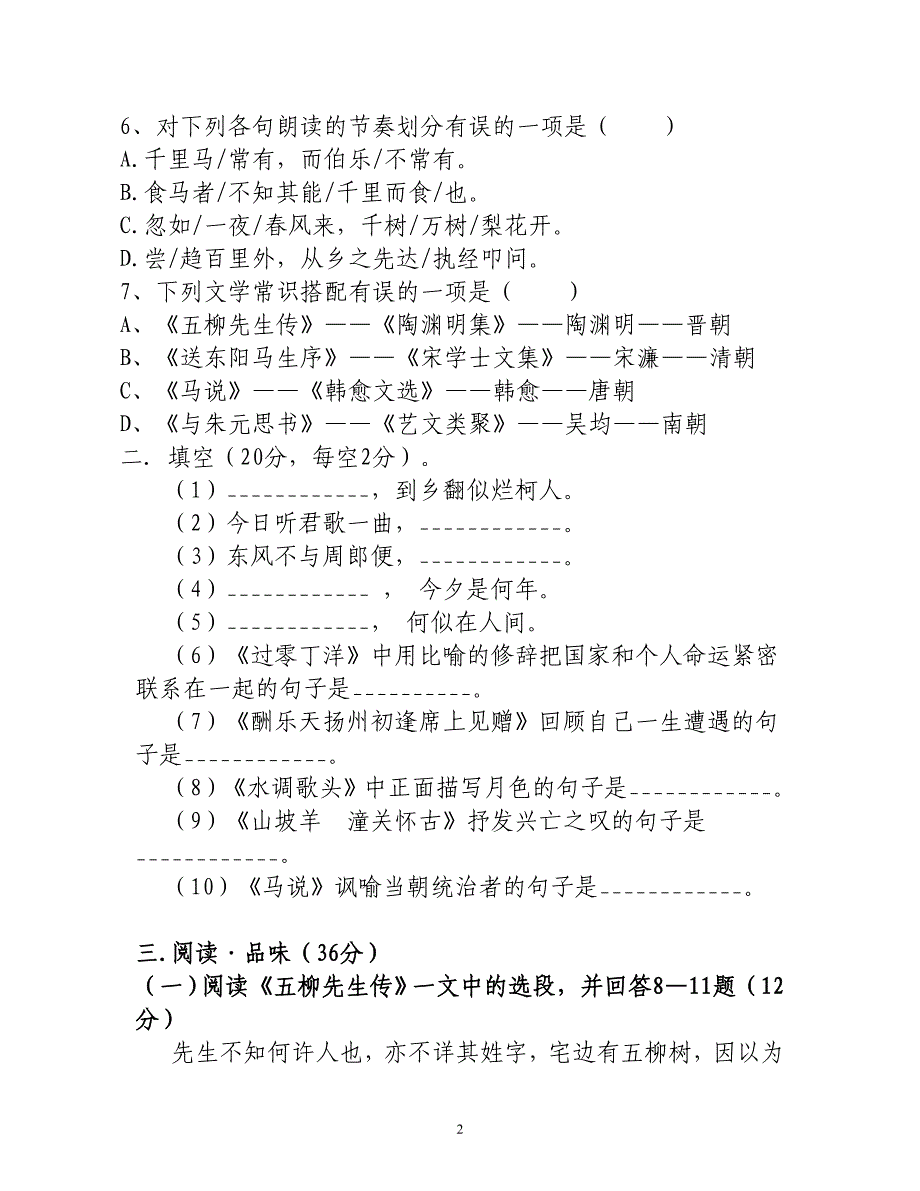 6、对下列各句朗读的节奏划分有误的一项是（　　）
A.千里马/常有，而伯乐/不常有。
B.食马者/不知其能/千里而食/也。
C.忽如/一夜/春风来，千树/万树/梨花开。
D.尝/趋百里外，从乡之先达/执经叩问。
7、下列文学常识搭配有误的一项是（　　）
A、《五柳先生传》——《陶渊明集》——陶渊明——晋朝
B、《送东阳马生序》——《宋学士文集》——宋濂——清朝
C、《马说》——《韩愈文选》——韩愈——唐朝
D、《与朱元思书》——《艺文类聚》——吴均——南朝
二. 填空（20分，每空2分）。
（1）____________，到乡翻似烂柯人。
（2）今日听君歌一曲，____________。
（3）东风不与周郎便，____________。
（4）____________ ， 今夕是何年。
（5）____________， 何似在人间。
（6）《过零丁洋》中用比喻的修辞把国家和个人命运紧密
联系在一起的句子是__________。
（7）《酬乐天扬州初逢席上见赠》回顾自己一生遭遇的句
子是____________。
（8）《水调歌头》中正面描写月色的句子是____________。
（9）《山坡羊　潼关怀古》抒发兴亡之叹的句子是
____________。
（10）《马说》讽喻当朝统治者的句子是____________。
三.阅读·品味（36分）
（一）阅读《五柳先生传》一文中的选段，并回答8—11题（12
分）
先生不知何许人也，亦不详其姓字，宅边有五柳树，因以为
2